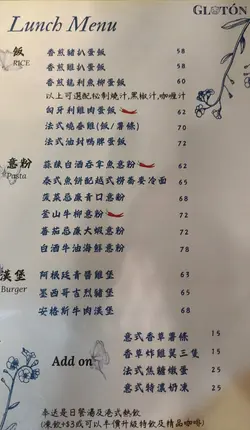 GLUTÓN
Lunch Menu
飯
RICE
香煎豬扒蛋飯 58
香煎雞扒蛋飯 58
香煎龍利魚柳蛋飯 60
以上可選配松制燒汁,黑椒汁,咖喱汁
匈牙利雞肉蛋飯 62
法式燒春雞(飯/薯條) 70
法式油封鴨脾蛋飯 72
意粉
Pasta
蒜蓉白酒吞拿魚意粉 62
泰式魚餅配越式撈蕎麥冷面 65
菠菜忌廉青口意粉 68
釜山牛柳意粉 72
番茄忌廉大蝦意粉 72
白酒牛油海鮮意粉 78
漢堡
Burger
阿根廷青醬雞堡 63
墨西哥吉烈豬堡 65
安格斯牛肉漢堡 68
Add on
意式香草薯條 15
香草炸雞翼三隻 15
法式焦糖燉蛋 25
意式特濃奶凍 25
奉送是日餐湯及港式熱飲
(凍飲+$3或可以半價升級特飲及精品咖啡)